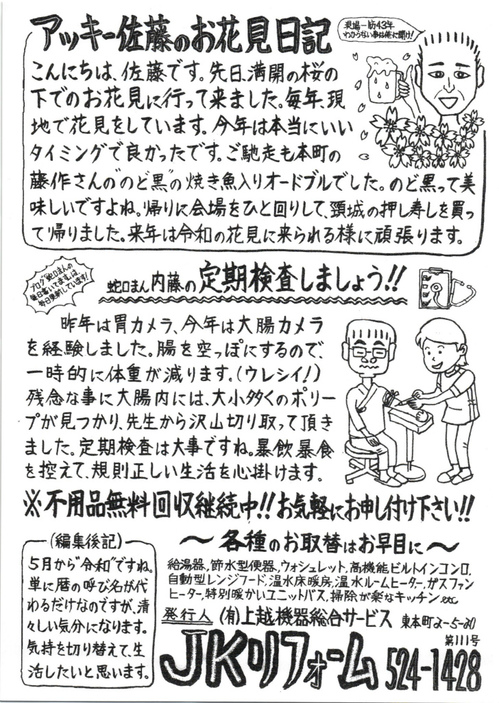 アッキー佐藤のお花見日記
現場一筋43年
わからない事は俺に聞け!
こんにちは、佐藤です。先日、満開の桜の
下でのお花見に行って来ました。毎年、現
地で花見をしています。今年は本当にいい
タイミングで良かったです。ご馳走も本町の
藤作さんの"のど黒"の焼き魚入りオードブルでした。のど黒って美
味しいですよね。帰りに会場をひと回りして、頸城の押し寿しを買っ
て帰りました。来年は令和の花見に来られる様に頑張ります。
ブログ蛇口まんの
毎日書いてまっせは、
毎日更新しています!
蛇口まん内藤の定期検査しましょう!!
昨年は胃カメラ、今年は大腸カメラ
を経験しました。腸を空っぽにするので、
一時的に体重が減ります。(ウレシイ!)
残念な事に大腸内には、大小多くのポリー
プが見つかり、先生から沢山切り取って頂き
ました。定期検査は大事ですね。暴飲暴食
を控えて、規則正しい生活を心掛けます。
※不用品無料回収継続中!!お気軽にお申し付け下さい!!
(編集後記)
5月から"令和"ですね。
単に暦の呼び名が代
わるだけなのですが、清
々しい気分になります。
気持を切り替えて、生
活したいと思います。
〜各種のお取替はお早目に〜
給湯器、節水型便器、ウォシュレット、高機能ビルトインコンロ、
自動型レンジフード、温水床暖房、温水ルームヒーター、ガスファン
ヒーター、特別暖かいユニットバス、掃除が楽なキッチン etc
発行人 (有)上越機器総合サービス 東本町2-5-20
第111号
JKリフォーム 524-1428